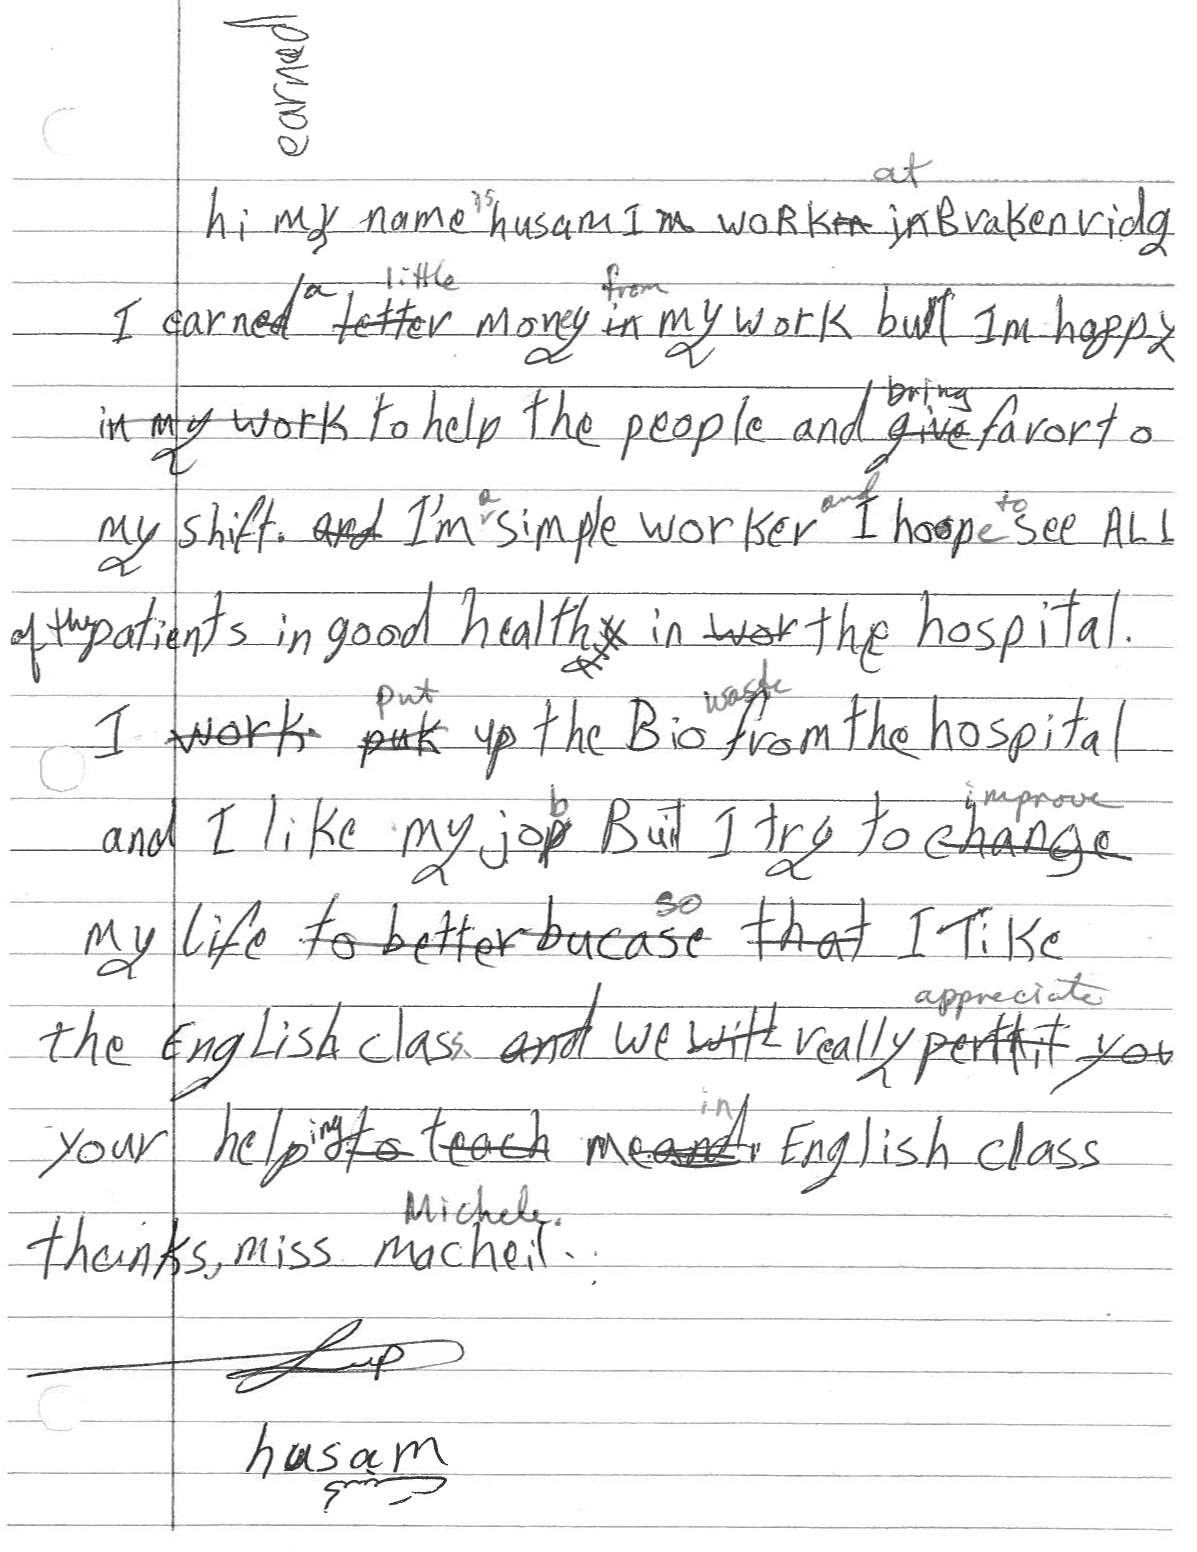 earned
at
hi my name is husam Im work in Brakenridg
a little from
I earned letter money in my work but Im happy
bring
in my work to help the people and give favor to
a and to
my shift. and I'm simple worker I hoope see ALL
of the patients in good health in wor the hospital.
put waste
I work puk up the Bio from the hospital
b improve
and I like my jop But I try to change
so
my life to better bucase that I like
appreciate
the English class. and we will really perthit you
in
your helping to teach me and English class
Michele.
thanks, miss macheil.
husam